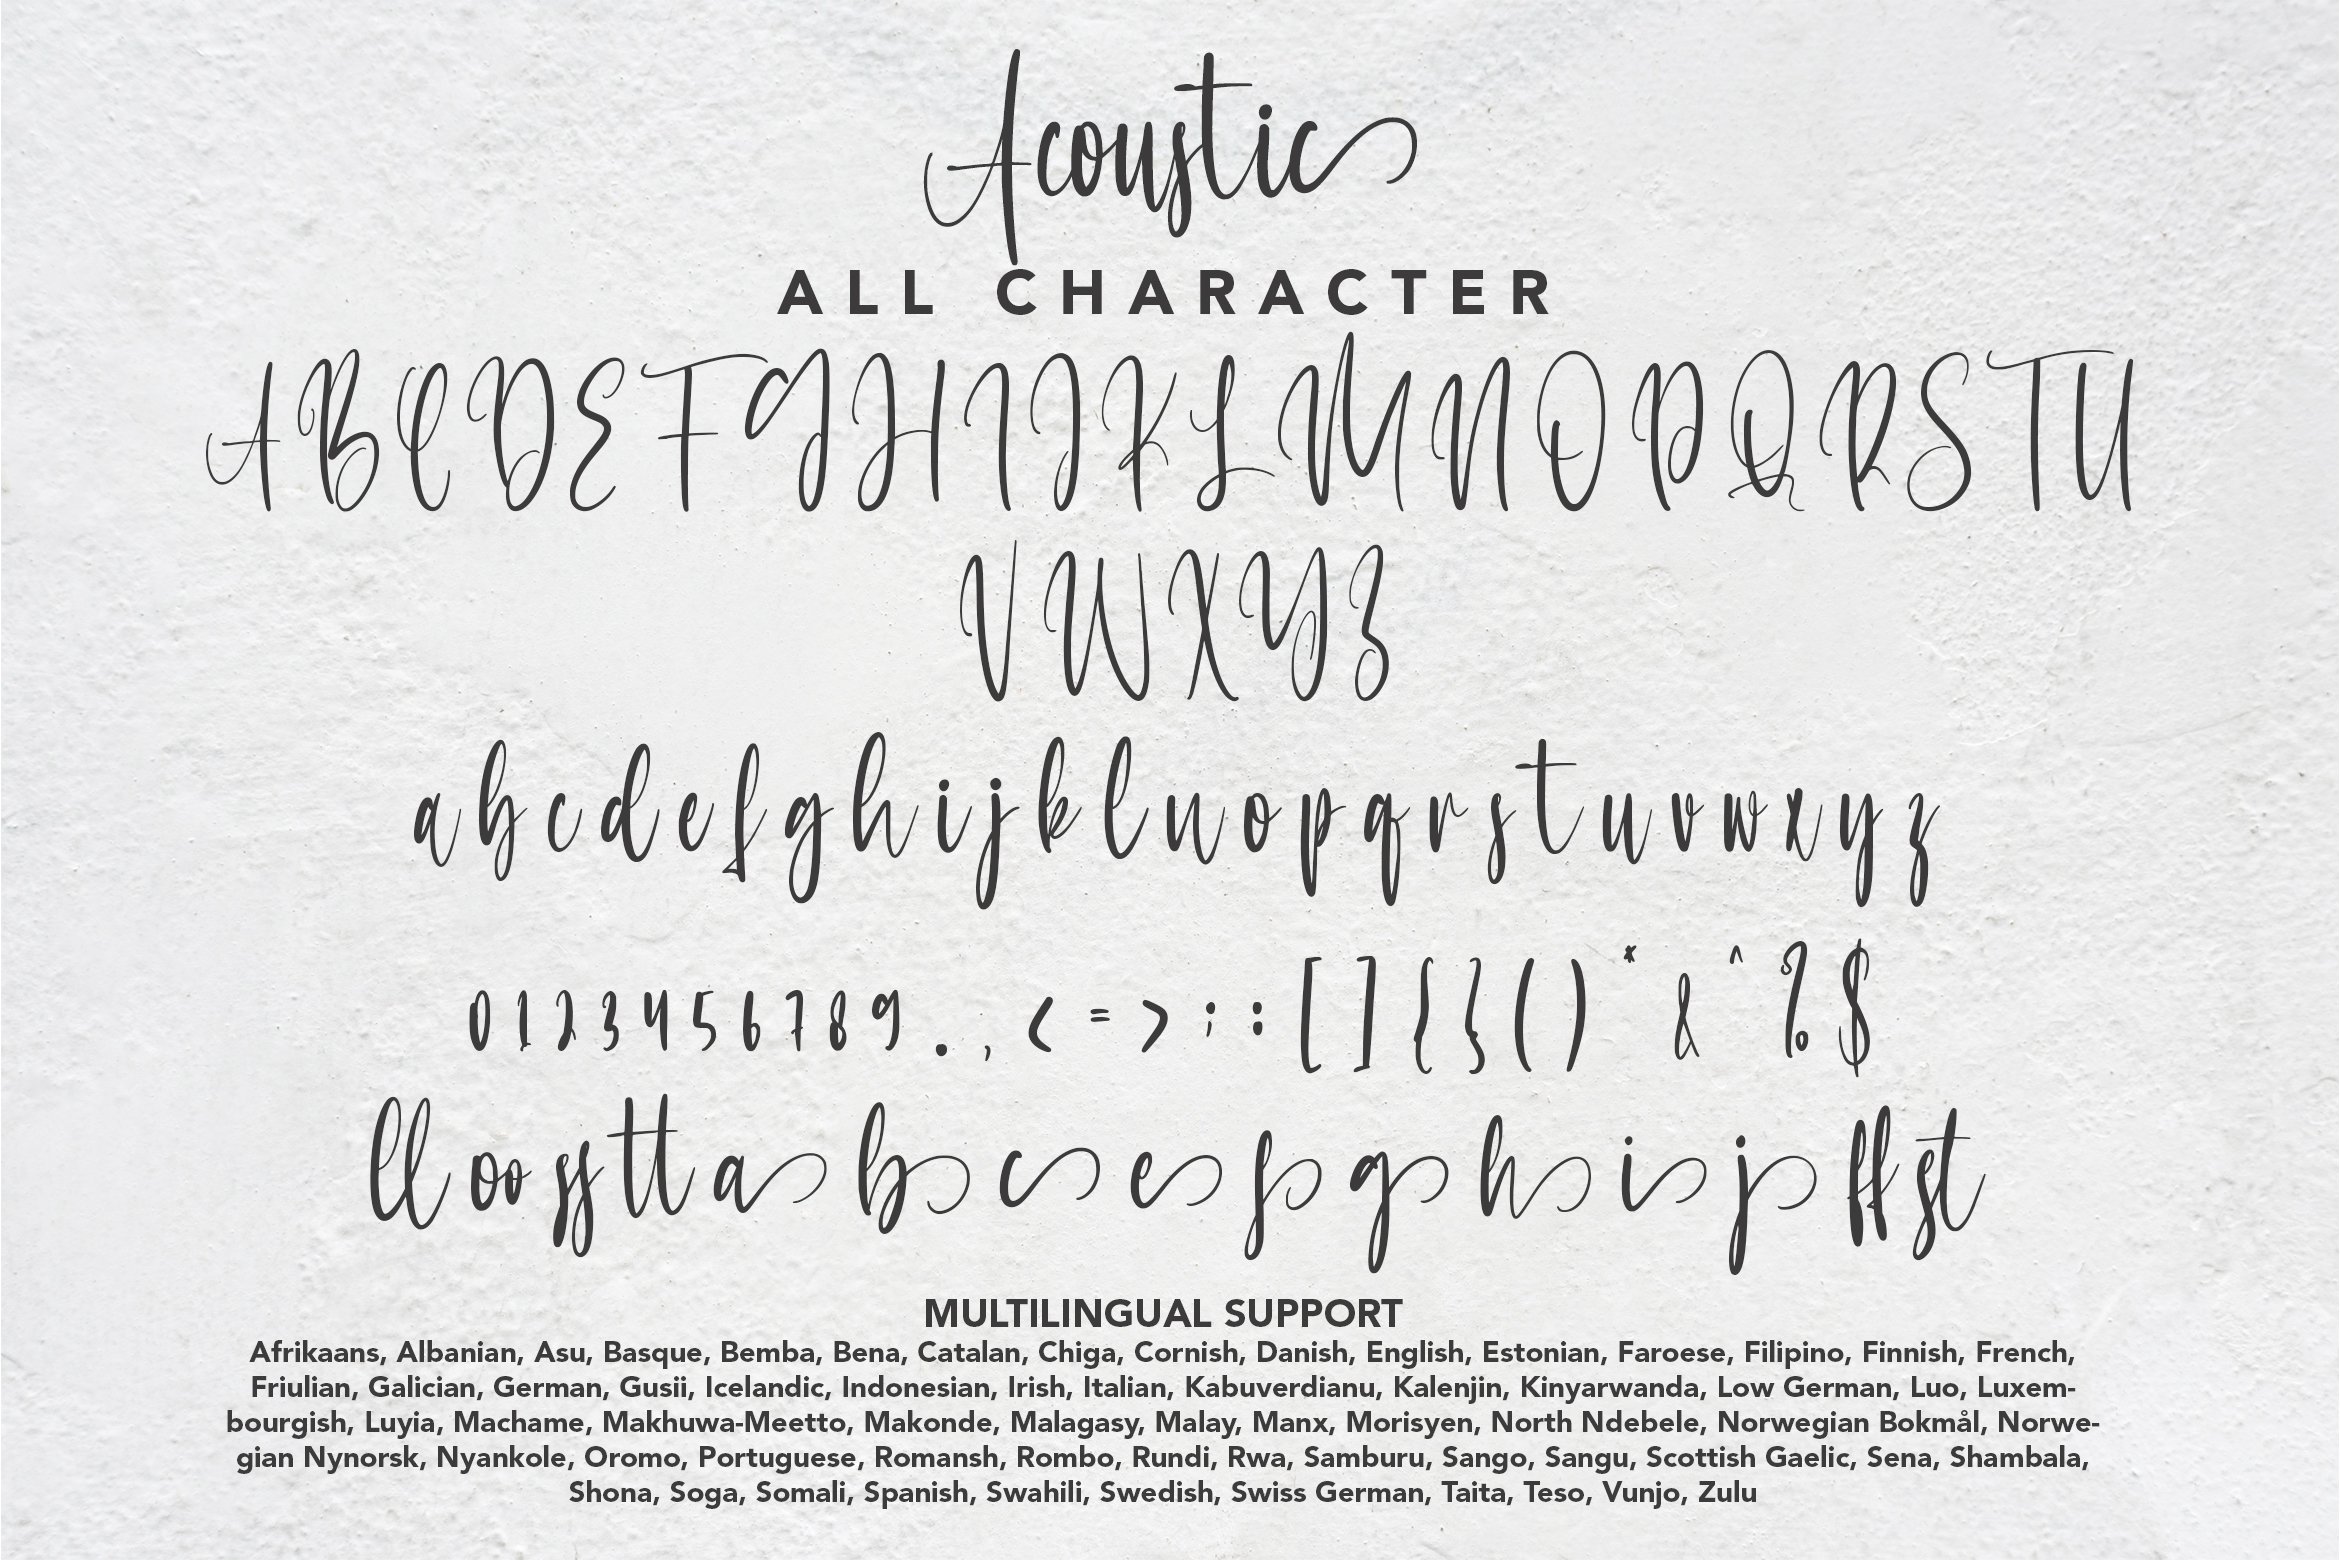 Acoustic
ALL CHARACTER
ABCDEFGHIJKLMNOPQRSTU
VWXYZ
abcdefghijklnopqrstuvwxyz
0123456789.,<=>;:[]{}()*&^?$
lloossttabcesghijffst
MULTILINGUAL SUPPORT
Afrikaans, Albanian, Asu, Basque, Bemba, Bena, Catalan, Chiga, Cornish, Danish, English, Estonian, Faroese, Filipino, Finnish, French,
Friulian, Galician, German, Gusii, Icelandic, Indonesian, Irish, Italian, Kabuverdianu, Kalenjin, Kinyarwanda, Low German, Luo, Luxem-
bourgish, Luyia, Machame, Makhuwa-Meetto, Makonde, Malagasy, Malay, Manx, Morisyen, North Ndebele, Norwegian Bokmål, Norwe-
gian Nynorsk, Nyankole, Oromo, Portuguese, Romansh, Rombo, Rundi, Rwa, Samburu, Sango, Sangu, Scottish Gaelic, Sena, Shambala,
Shona, Soga, Somali, Spanish, Swahili, Swedish, Swiss German, Taita, Teso, Vunjo, Zulu